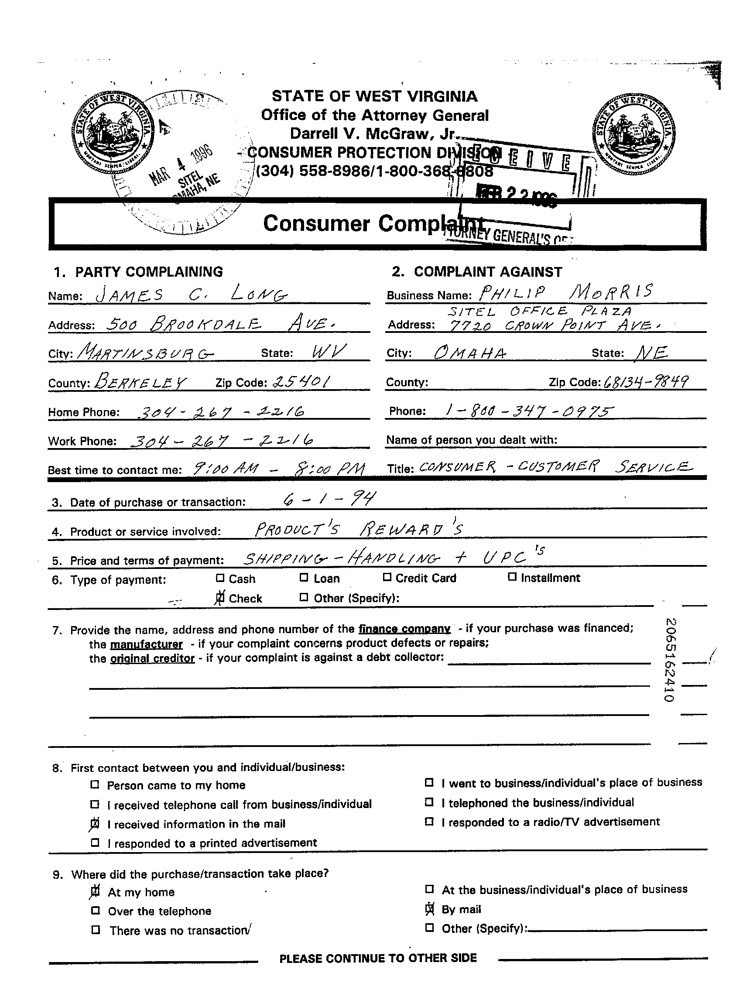 STATE OF WEST VIRGINIA
Office of the Attorney General
Darrell V. McGraw, Jr.
CONSUMER PROTECTION DIVISION
(304) 558-8986/1-800-368-8808
STATE OF WEST VIRGINIA
MONTANI SEMPER LIBERI
STATE OF WEST VIRGINIA
MONTANI SEMPER LIBERI
MAR 4 1996
SITEL
OMAHA, NE
FEB 22 1996
Consumer Complaint
1. PARTY COMPLAINING
Name: JAMES C. LONG
Address: 500 BROOKDALE AVE.
City: MARTINSBURG State: WV
County: BERKELEY Zip Code: 25401
Home Phone: 304-267-2216
Work Phone: 304-267-2216
Best time to contact me: 9:00 AM - 8:00 PM
2. COMPLAINT AGAINST
Business Name: PHILIP MORRIS
SITEL OFFICE PLAZA
Address: 7720 CROWN POINT AVE.
City: OMAHA State: NE
County: Zip Code: 68134-9849
Phone: 1-800-347-0975
Name of person you dealt with:
Title: CONSUMER - CUSTOMER SERVICE
3. Date of purchase or transaction: 6-1-94
4. Product or service involved: PRODUCT'S REWARD'S
5. Price and terms of payment: SHIPPING-HANDLING + UPC'S
6. Type of payment: Cash Loan Credit Card Installment
Check Other (Specify):
7. Provide the name, address and phone number of the finance company - if your purchase was financed;
the manufacturer - if your complaint concerns product defects or repairs;
the original creditor - if your complaint is against a debt collector:
2065162410
8. First contact between you and individual/business:
Person came to my home
I received telephone call from business/individual
I received information in the mail
I responded to a printed advertisement
I went to business/individual's place of business
I telephoned the business/individual
I responded to a radio/TV advertisement
9. Where did the purchase/transaction take place?
At my home
Over the telephone
There was no transaction
At the business/individual's place of business
By mail
Other (Specify):
PLEASE CONTINUE TO OTHER SIDE